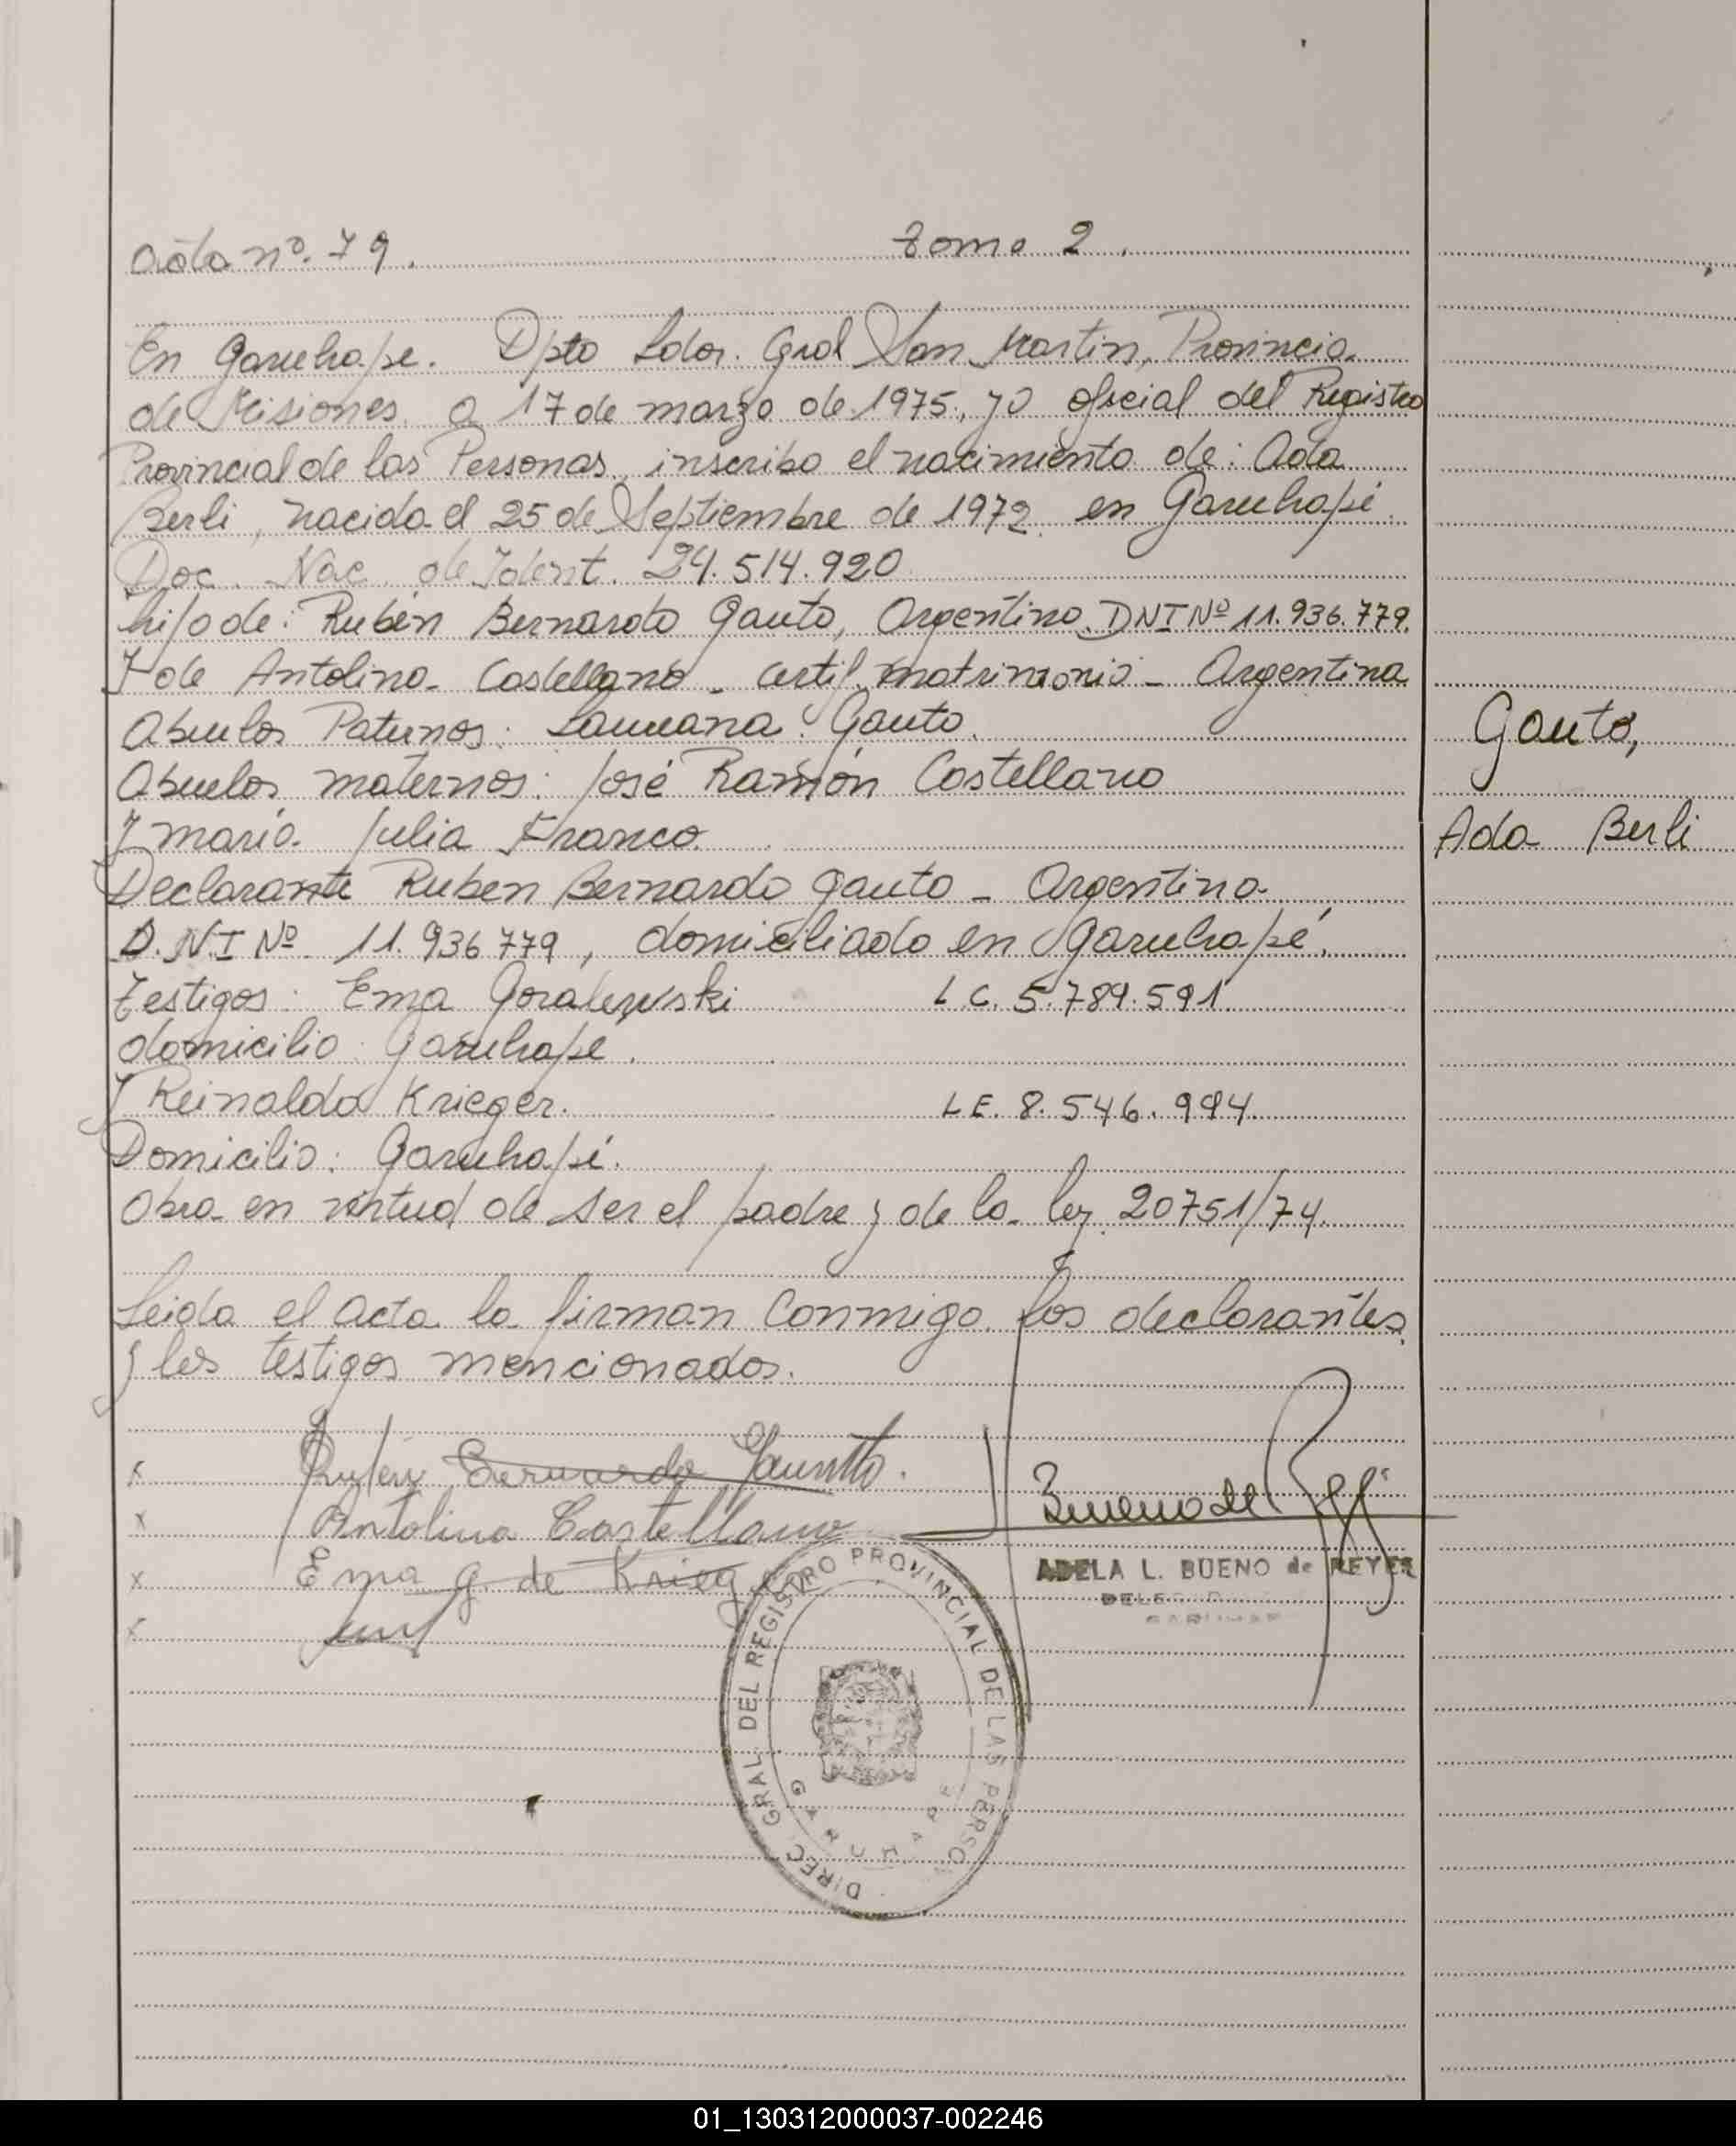 Acta nº. 79. tomo 2.
En Garuhape. Dpto Ldor. Gral San Martin, Provincia
de Misiones, a 17 de marzo de 1975, yo oficial del Registro
Provincial de las Personas, inscribo el nacimiento de: Ada
Berli, nacida el 25 de Septiembre de 1972. en Garuhapé.
Doc. Nac. de Ident. 24.514.920
hijo de: Rubén Bernardo Gauto, Argentino. DNI Nº 11.936.779.
Y de Antolina Castellano - certif. matrimonio - Argentina
Abuelos Paternos: Laureana Gauto.
Gauto,
Abuelos maternos: José Ramón Castellano
Y maria Julia Franco.
Ada Berli
Declarante Ruben Bernardo Gauto - Argentino
D.N.I Nº 11.936779, domiciliado en Garuhapé.
Testigos: Ema Goralewski L.C. 5.789.591.
domicilio: Garuhape.
Y Reinaldo Krieger. L.E. 8.546.994.
Domicilio: Garuhapé.
Obra en virtud de ser el padre y de la ley 20751/74.
Leida el acta la firman conmigo los declarantes
y los testigos mencionados.
x Rubén Bernardo Gauto.
x Antolina Castellano
x Ema G. de Krieger
x
Bueno de
ADELA L. BUENO de REYES
DIREC. GRAL. DEL REGISTRO PROVINCIAL DE LAS PERSO
GARUHAPE
01_130312000037-002246